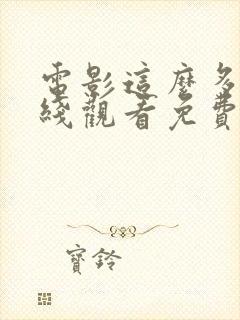 電影這麼多
綫觀看免費
寶鈴